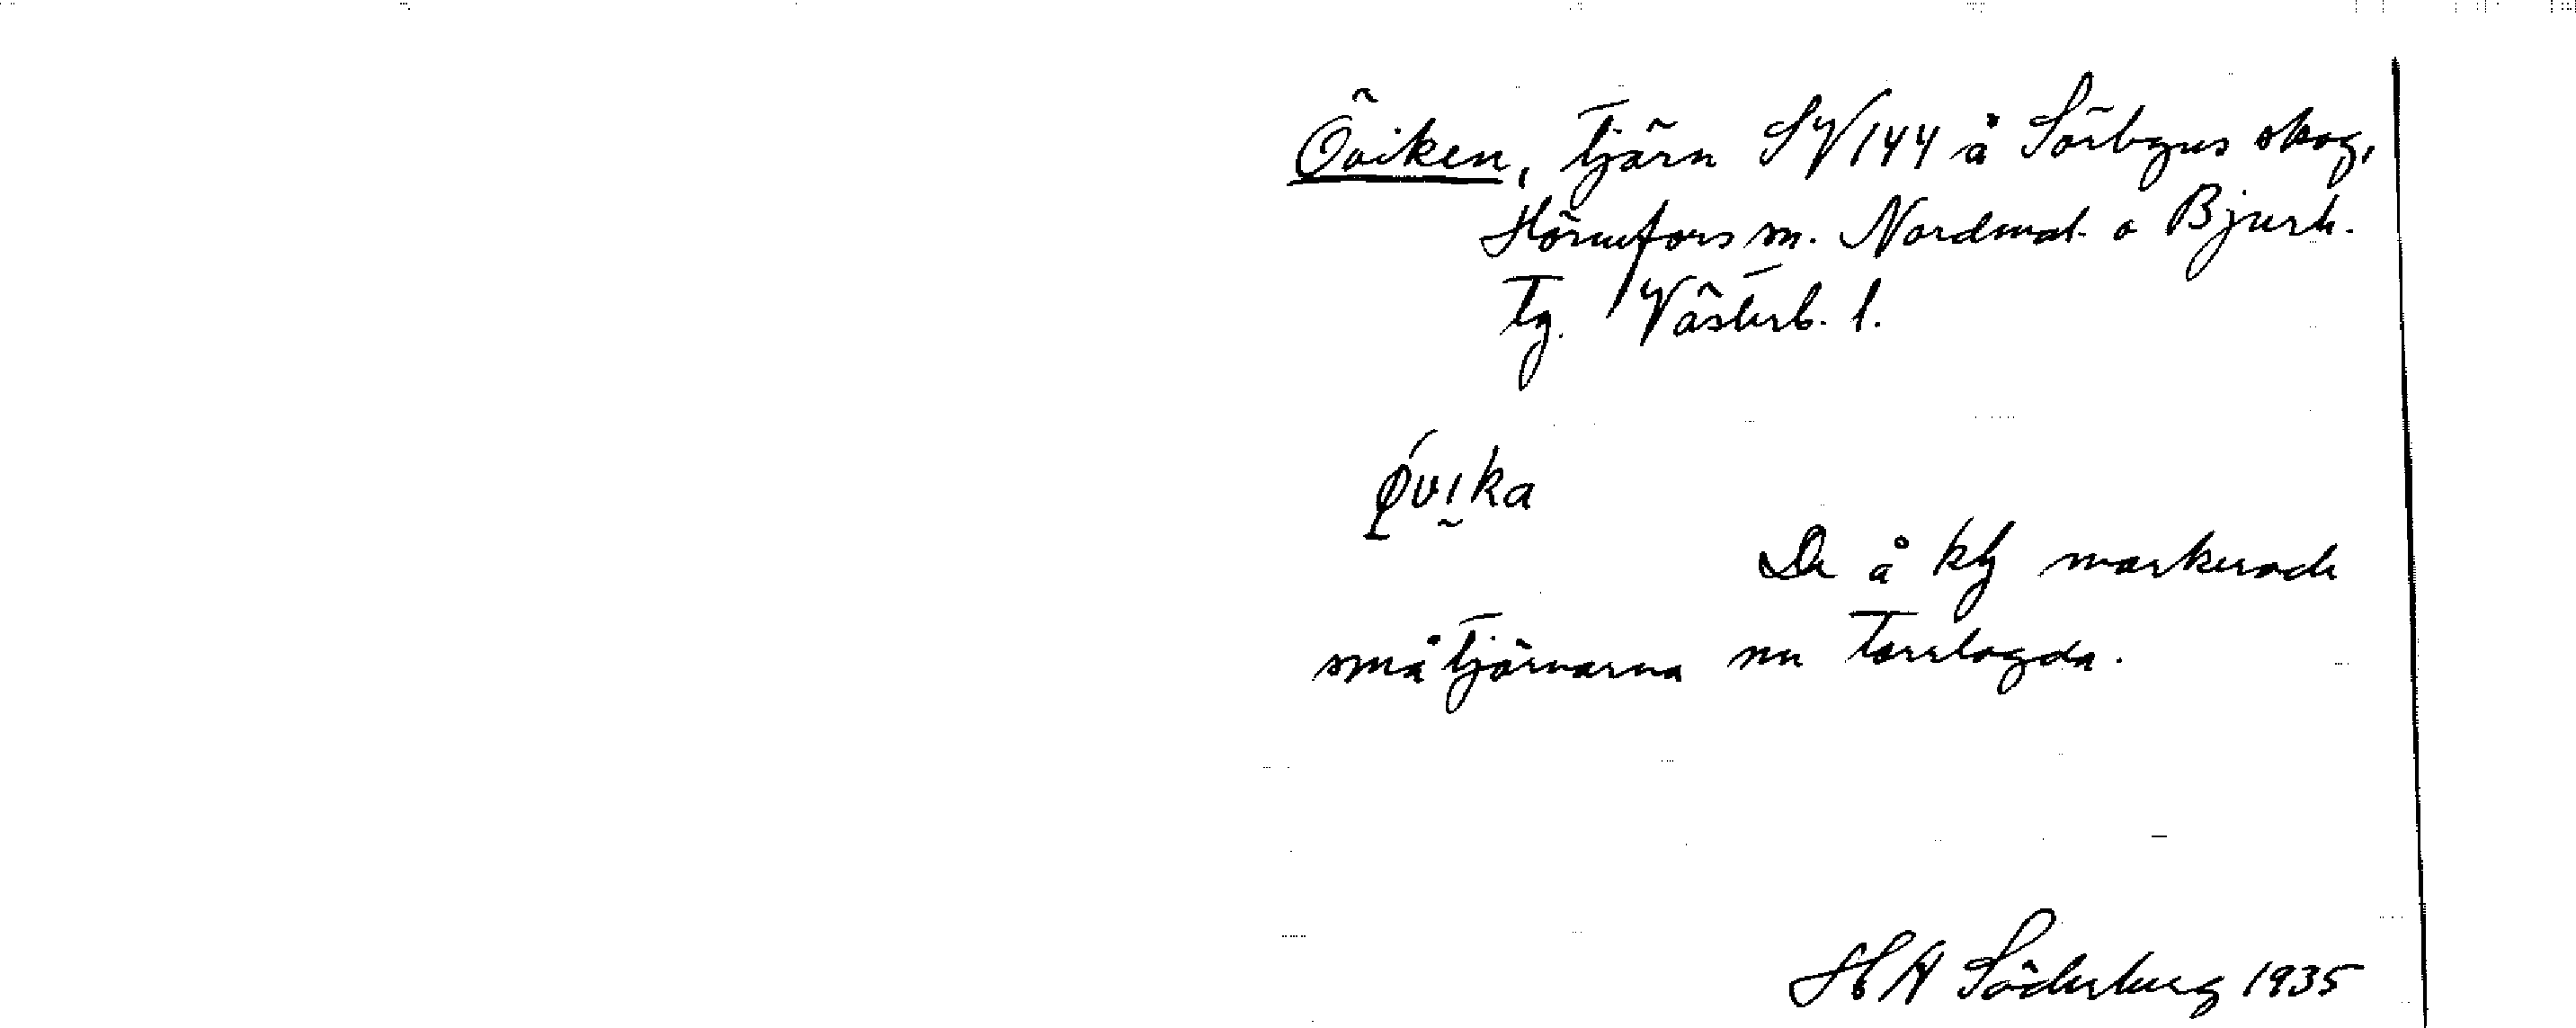 Öviken, tjärn SV 144 å Sörbyns skog,
Hörnefors sn. Nordmal. o Bjurh.
tg. Västerb. l.
øvika
De å kbl markerade
småtjärnarna nu torrlagda.
HA Söderberg 1935